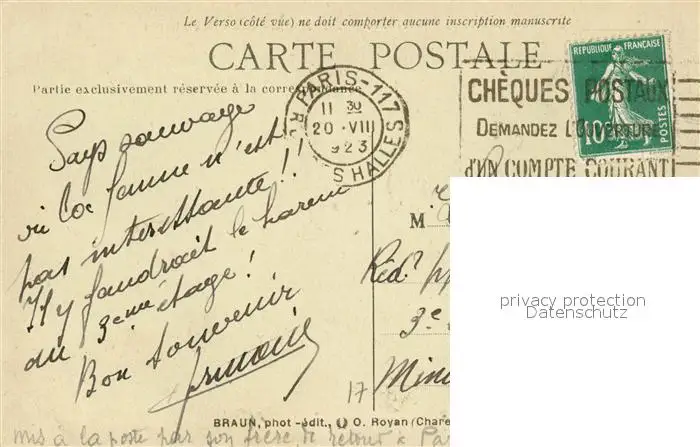 Le Verso (côté vue) ne doit comporter aucune inscription manuscrite
CARTE POSTALE
Partie exclusivement réservée à la correspondance
PARIS-117
11 30
20 · VII
923
S HALLES
REPUBLIQUE FRANÇAISE
10
POSTES
CHÈQUES POSTAUX
DEMANDEZ L'OUVERTURE
d'UN COMPTE COURANT
Pays sauvage
où la femme n'est
pas intéressante !!
Il y faudrait le harem
du 3eme étage !
Bon Souvenir
M
Réd.
3e
Min
17
privacy protection
Datenschutz
BRAUN, phot-édit., O. Royan (Chare
mis à la poste par son frère de retour à Pa